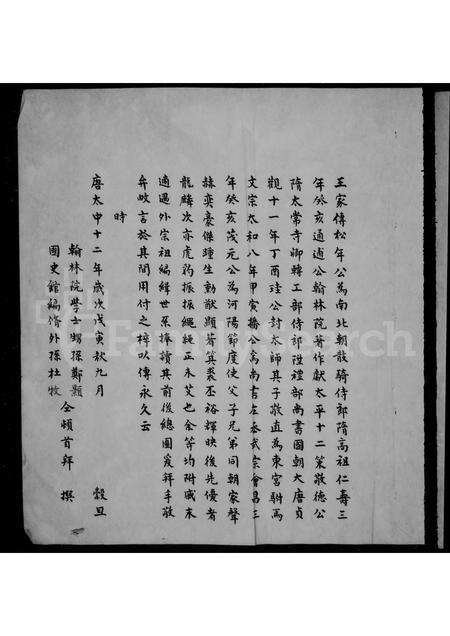 王家傳松年公為南北朝散騎侍郎隋高祖仁壽三
年癸亥通逈公翰林院著作獻太平十二策敬德公
隋太常寺卿轉工部侍郎陞禮部尚書國朝大唐貞
觀十一年丁酉珪公封太師其子敬直為東宮駙馬
文宗太和八年甲寅播公為尚書左丞武宗會昌三
年癸亥茂元公為河陽節度使父子兄弟同朝家聲
赫奕豪傑踵生勳猷顯著箕裘丕裕輝映後先優者
龍驤次亦虎豹振振繩繩正未艾也余等均附戚末
適遇外宗祖編緝世系捧讀其前後總圖爰拜手敬
弁數言於其間用付之梓以傳永久云
時
唐太中十二年歲次戊寅秋九月 穀旦
翰林院學士甥孫鄭顥
國史館編修外孫杜牧 仝頓首拜 撰
FamilySearch